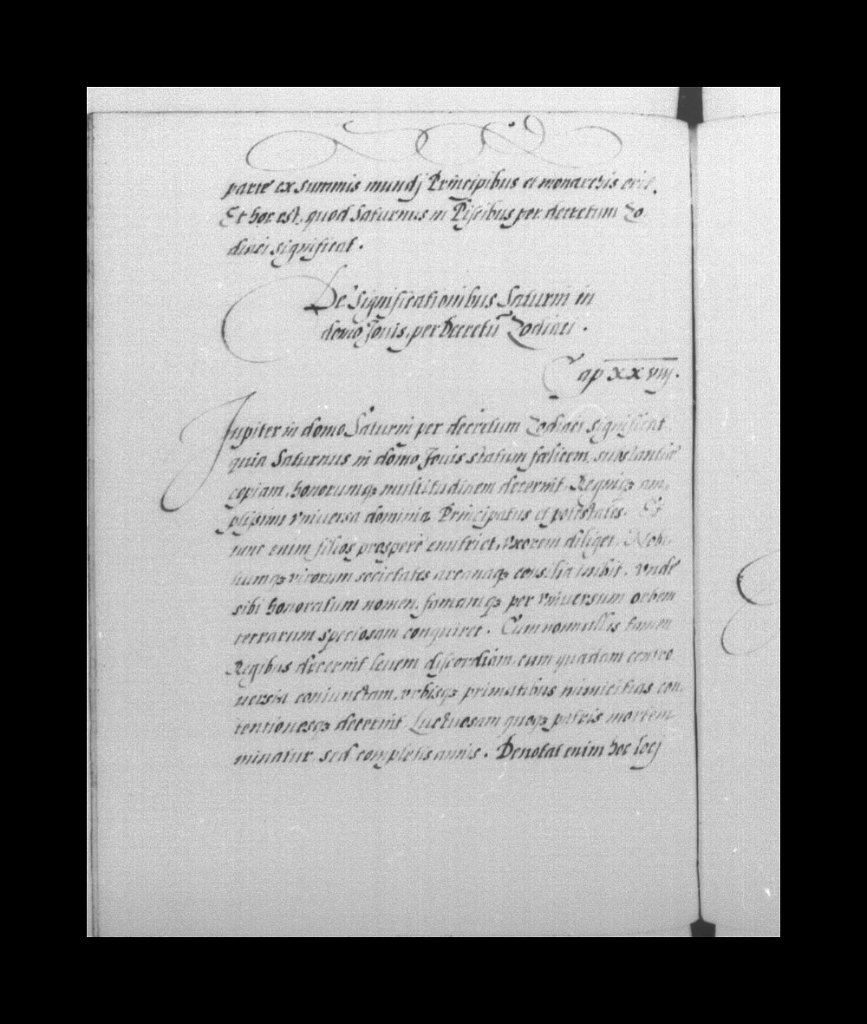 parte ex summis mundj Principibus et monarchis erit.
Et hoc est, quod Saturnus in Piscibus per decretum Zo
diaci significat.
De Significationibus Saturni in
domo Jouis, per Decretũ Zodiaci.
Cap XXVIIJ.
Jupiter in domo Saturni per decretum Zodiaci significat
quia Saturnus in domo Jouis statum felicem, substantiæ
copiam, honorumq; multitudinem decernit. Regniq; am
plissimi vniuersa dominia Principatus et potestates. Et
tunc enim filios prosperè enutriet, vxorem diliget. Nobi
liumq; virorum societates arcanaq; consilia inibit. vnde
sibi honoratum nomen, famamq; per vniuersum orbem
terrarum speciosam conquiret. Cum nonnullis tamen
Regibus decernit leuem discordiam, cum quadam contro
uersia coniunctam, vrbisq; primatibus inimicitias con
tentionesq; decernit. Luctuosam quoq; patris mortem
minatur, sed completis annis. Denotat enim hoc locj